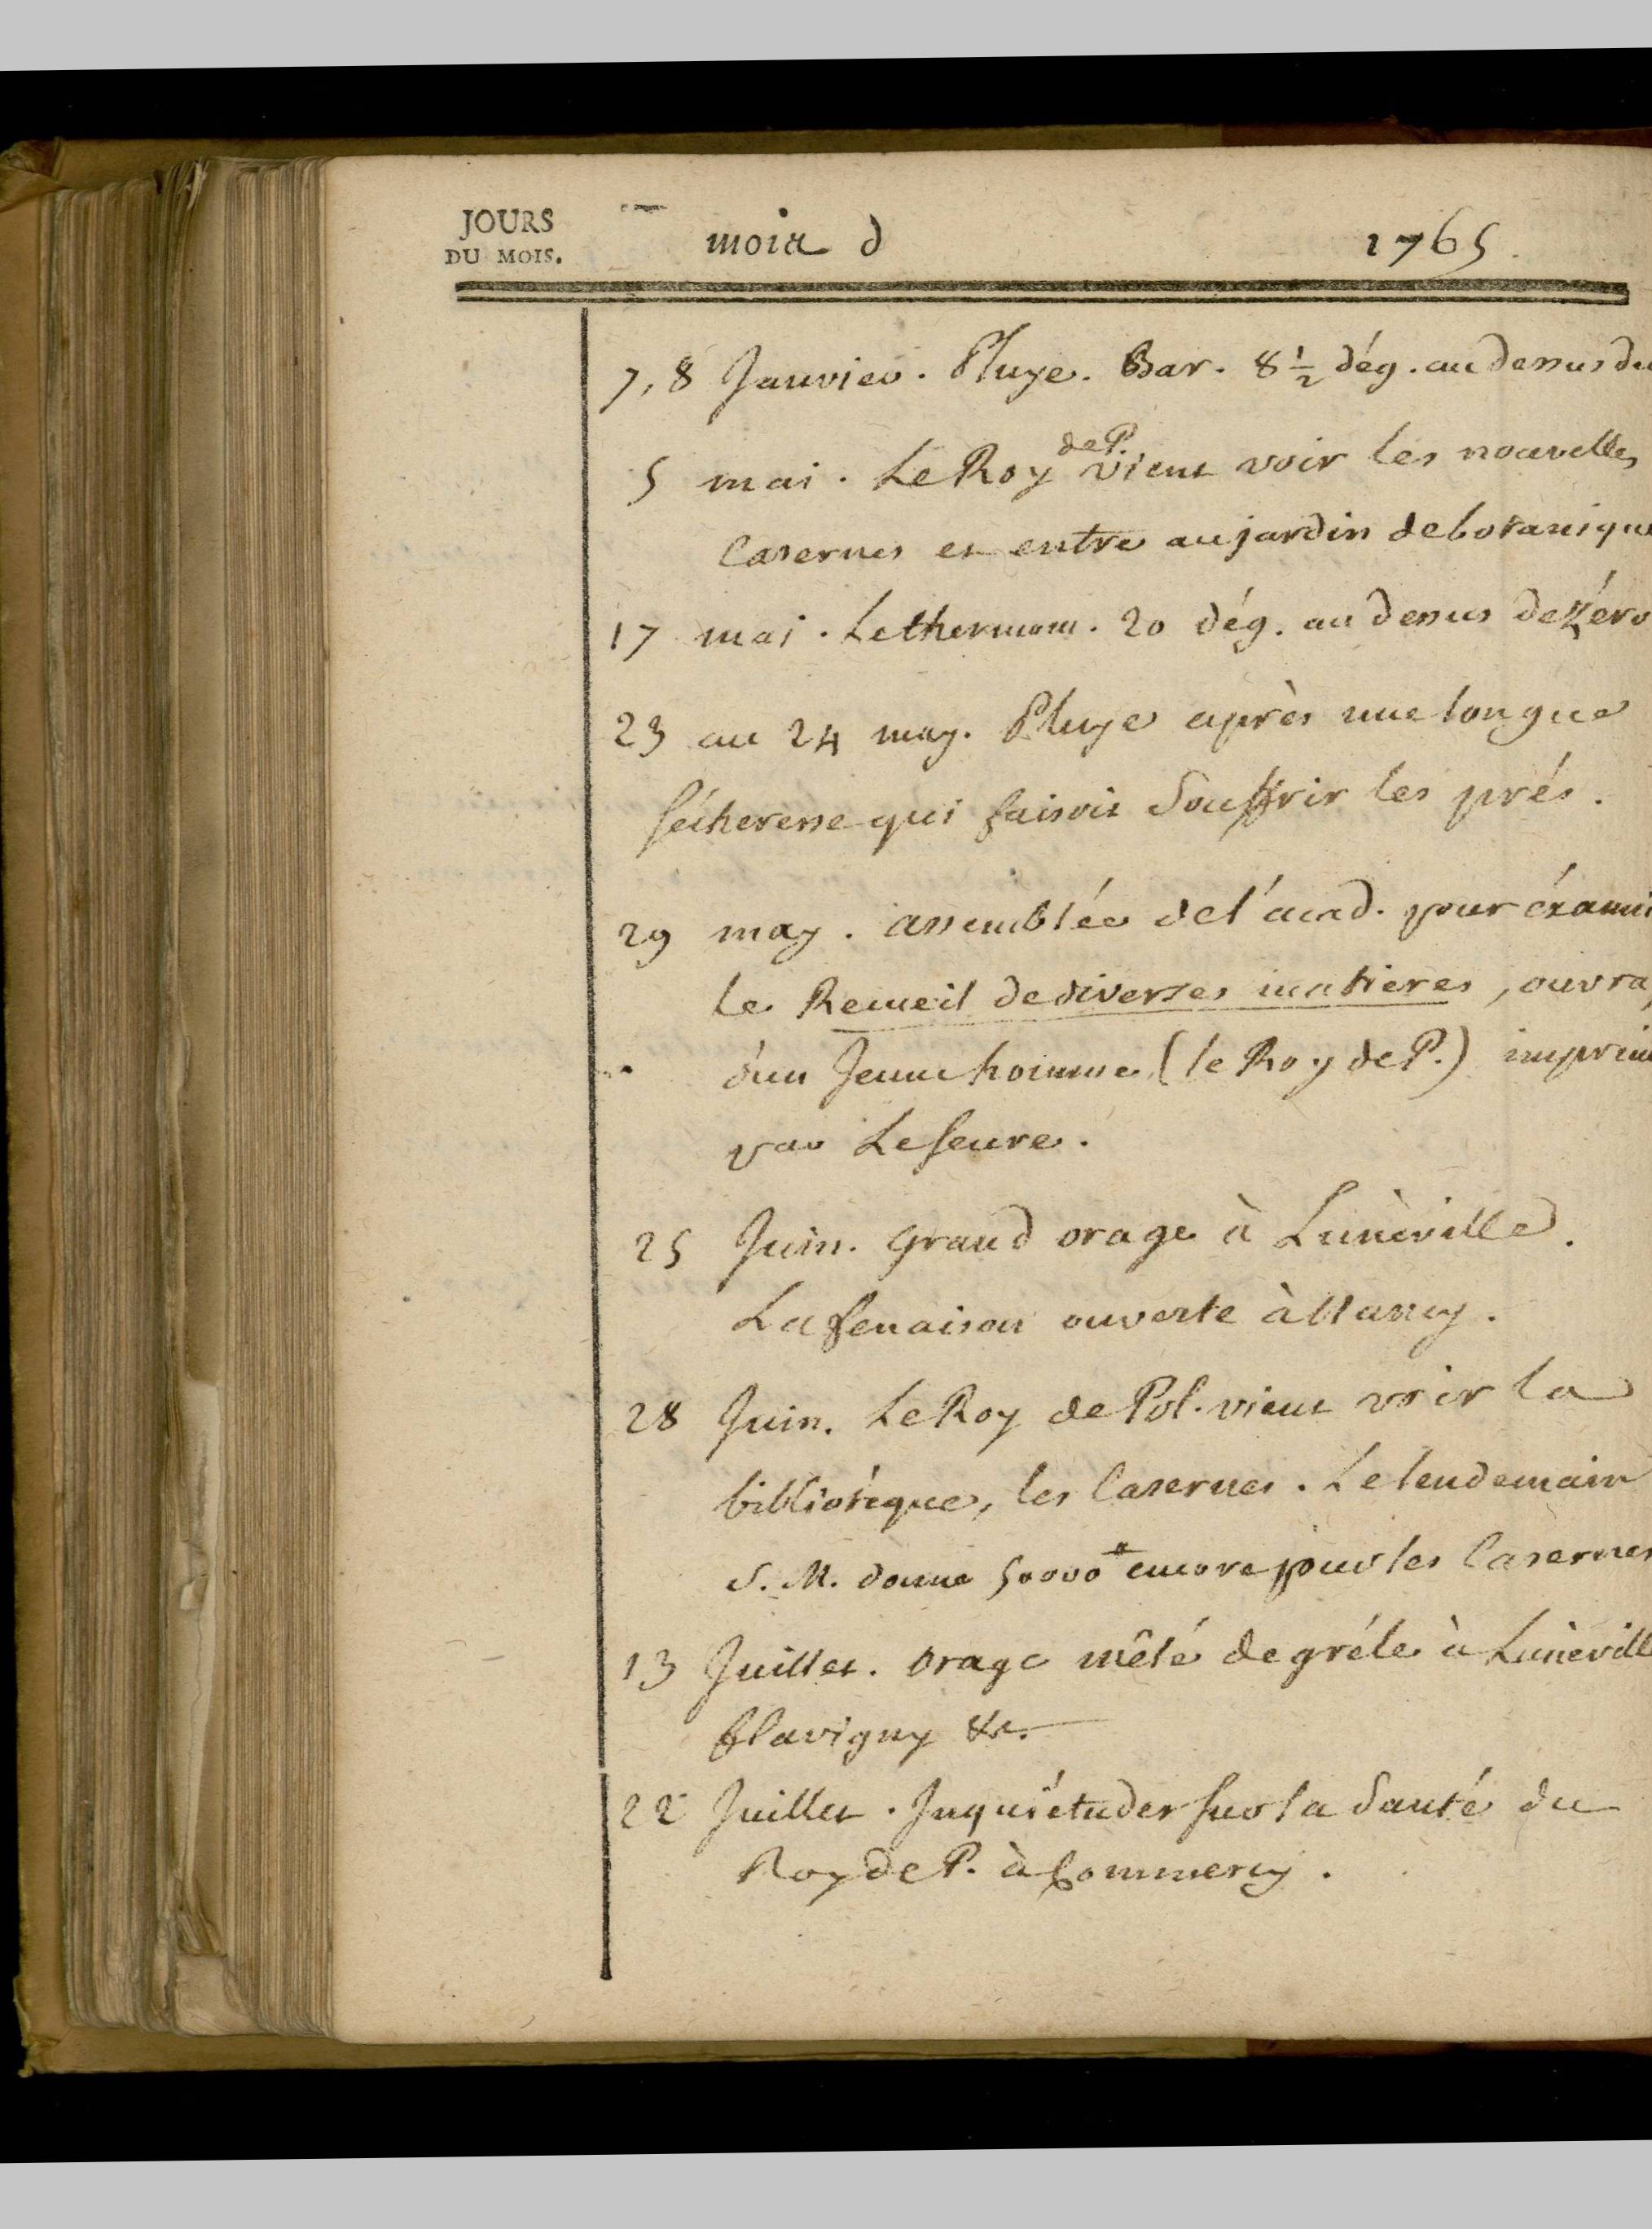 JOURS
DU MOIS.
mois d 1765.
7, 8 Janvier. Pluye. Bar. 8 ½ dég. au dessus du
de P.
5 mai. Le Roy vient voir les nouvelles
Casernes et entre au jardin de botanique
17 mai. Le thermom. 20 dég. au dessus de zéro
23 au 24 may. Pluye après une longue
sécheresse qui faisoit Souffrir les prés.
29 may. assemblée de l'acad. pour éxami
le Recueil de diverses matières, ouvra
d'un Jeune homme (le Roy de P.) imprim
par Leseure.
25 Juin. grand orage à Lunéville.
La fenaison ouverte à Nancy.
28 Juin. Le Roy de Pol. vient voir la
bibliotéque, les Casernes. Le lendemain
S. M. donne 50000 # encore pour les Casernes
13 Juillet. Orage mêlé de gréle à Lunévill
flavigny &c.
22 Juillet. Inquiétudes sur la Santé du
Roy de P. à Commercy.